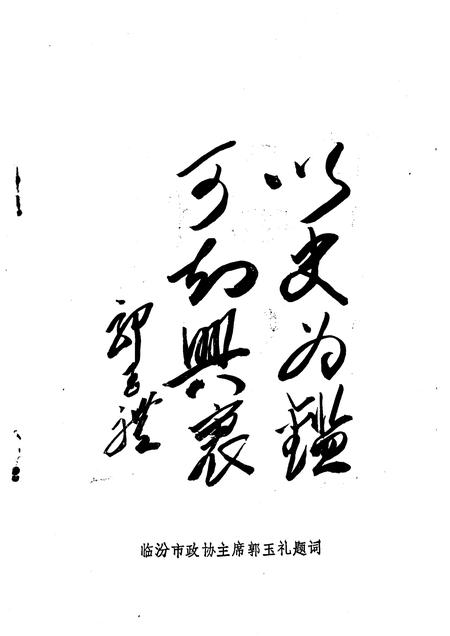 以史为鑑
可知興衰
郭玉禮
临汾市政协主席郭玉礼题词